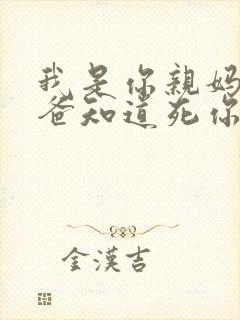 我是你親媽
爸知道死你
金漢吉